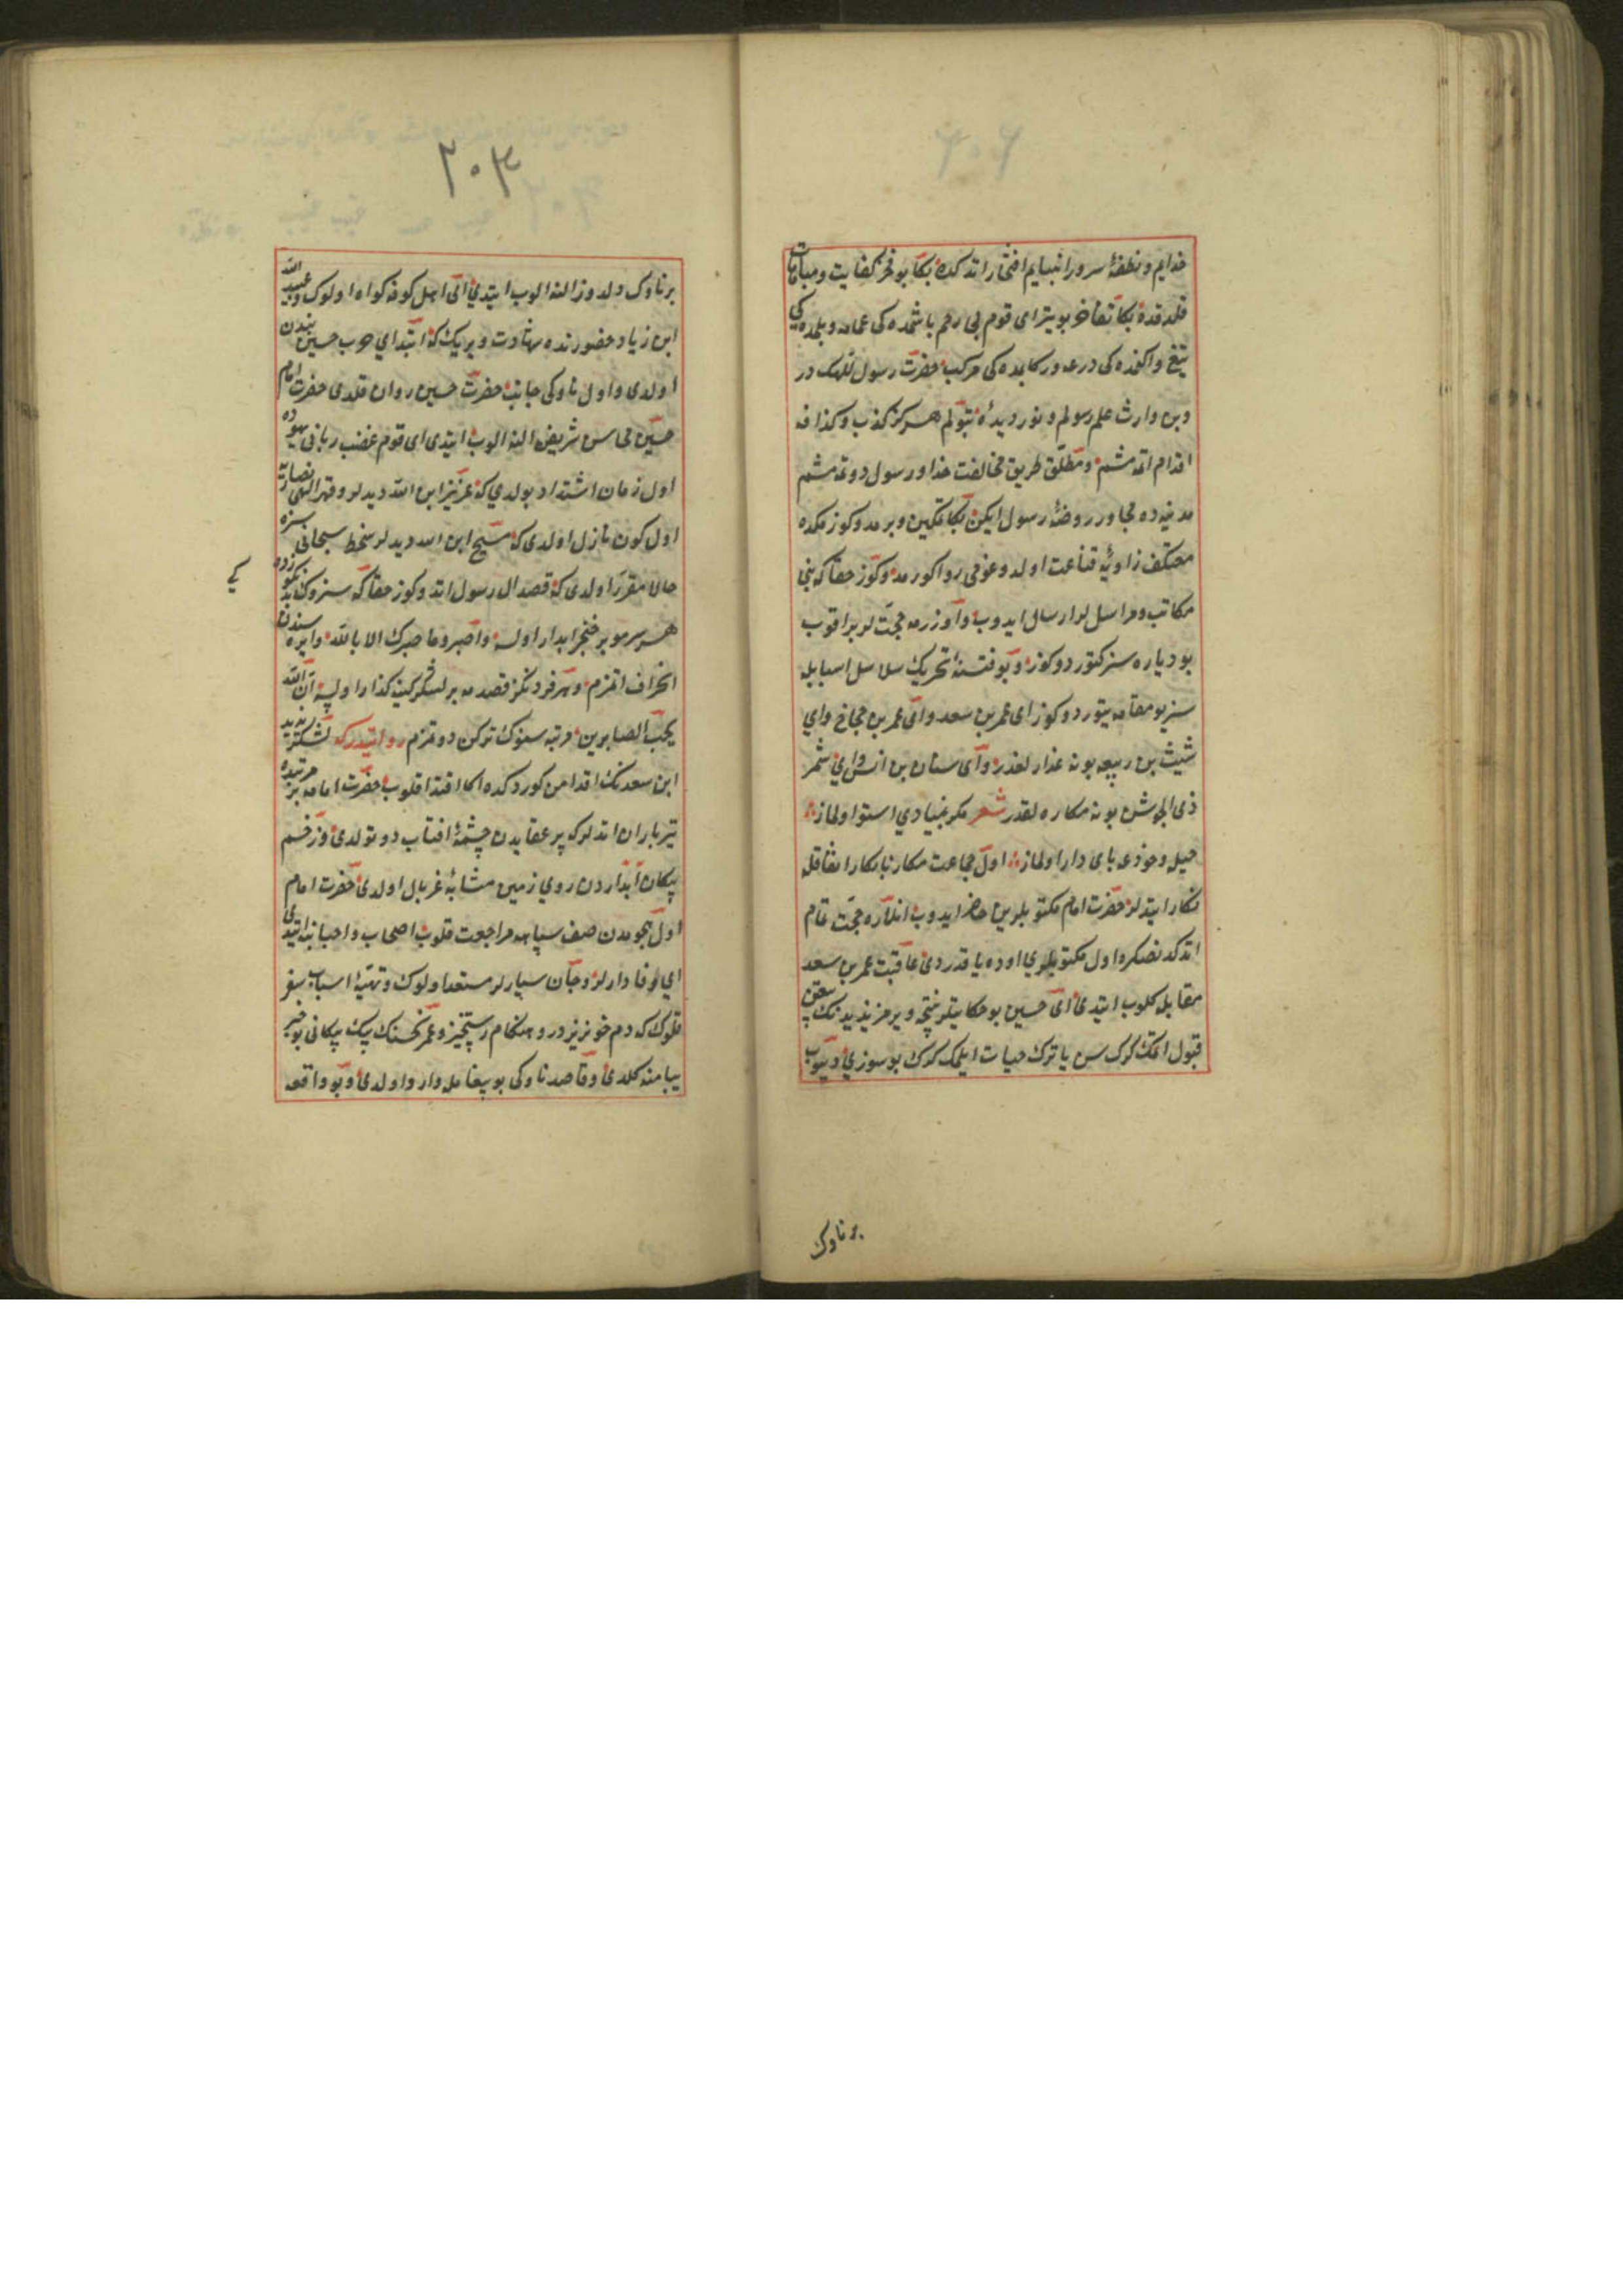 خدایم و نطفهٔ سرور انبیایم افتخار اتدکده بکا بو فخر کفایت و مباهات
قلدقده بکا تفاخر بو یتر ای قوم بی رحم باشمده کی عمامه و بلمده کی
تیغ و اکنمده کی درعه و رکابمده کی مرکب حضرت رسول الله کدر
و بن وارث علم رسولم و نور دیدهٔ بتولم هرکز کذب و کذافه
اقدام اتمه مشم و مطلق طریق مخالفت خدا و رسول دوتمه مشم
مدینه ده مجاور روضهٔ رسول ایکن بکا تمکین ویرمدوکوز مکده
معتکف زاویهٔ قناعت اولدوغومی روا کورمدوکوز حقا که بنجا
مکاتب و مراسل لر ارسال ایدوب و اوزرمه حجت لر براقوب
بو دیاره سز کتوردوکوز و بو فتنهٔ تحریک سلاسل اسبابیله
سز بو مقامه یتوردوکوز ای عمر بن سعد و ای عمر بن حجاج و ای
شیث بن ربیعه بو نه غدار لغدر و ای سنان بن انس و ای شمر
ذی الجوشن بو نه مکاره لقدر شعر مکر بنیادی استوا اولماز
حیل و خدعه پای دار اولماز اول جماعت مکار نابکار اتفاقله
انکار ایتدیلر حضرت امام مکتوبلرین حاضر ایدوب انلاره حجت تمام
اتدکدنصکره اول مکتوبلری اوده یاقدردی عاقبت عمر بن سعد
مقابله کلوب ایتدی ای حسین بو حکایتلر نتیجه ویرمز یزیدنک بیعتن
قبول اتمک کرک سن یا ترک حیات ایلمک کرک بو سوزی دیوب
بر ناوک
۲۰۳
بر ناوک دلدوز النه الوب ایتدی ای اهل کوفه کواه اولوک و عبید الله
ابن زیاد حضورنده شهادت ویریک که ابتدای حرب حسین بندن
اولدی و اول ناوکی جانب حضرت حسین روان قلدی حضرت امام
حسین محاسن شریفن النه الوب ایتدی ای قوم غضب ربانی یهوده
اول زمان اشتداد بولدی که عزیر ابن الله دیدیلر و قهر الهی نصارایه
اول کون نازل اولدی که مسیح ابن الله دیدیلر سخط سبحانی سزه
حالا مقرر اولدی که قصد ال رسول اتدوکوز حقا که سزوک
هر سر مو بر خنجر ابدار اولسه واصبر وما صبرک الا بالله دایره سندن
انحراف اتمزم و هر فردنکز قصدمه بر لشکر کینه کذار اولسه ان الله
یحب الصابرین مرتبه سنوک ترکن دوتمزم روایتدر که لشکر یزید
ابن سعدنک اقدامن کوردکده اکا اقتدا قلوب حضرت امامه بر مرتبده
تیر باران اتدیلر که پر عقابدن چشمهٔ افتاب دوتولدی و زخم
پیکان ابداردن روی زمین مشابهٔ غربال اولدی حضرت امام
اول هجومدن صف سپاهه مراجعت قلوب اصحاب و احبابنه ایتدی
ای وفادارلر و جان سپارلر مستعد اولوک و تهیهٔ اسباب سفر
قلوک که دم خونریزدر و هنکام رستخیز و عمر پیک پیکانی بو خبر
پیامنه کلدی و قاصد ناوکی بو پیغامله وارد اولدی و بو واقعه